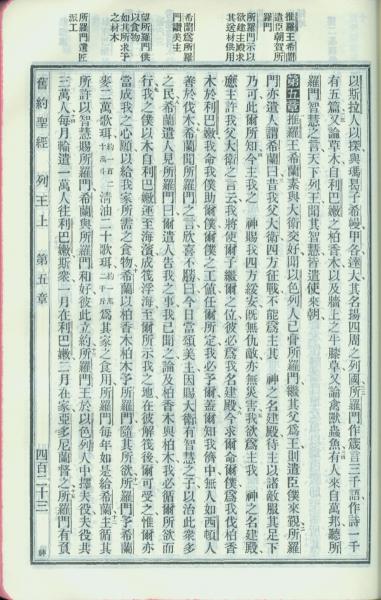 推羅王希蘭遣臣朝賀所羅門
所羅門示以欲建主殿求其送材供用
希蘭為所羅門讚美主
望所羅門供以食物如其所求予之材木
所羅門遣匠派工
以斯拉人以探與瑪曷子希幔甲各達大其名揚四周之列國所羅門作箴言三千語作詩一千
有五篇又論草木自利巴嫩之柏香木以及牆上之牛膝草又論禽獸蟲魚有人來自萬邦聽所
羅門智慧之言天下列王聞其智慧皆遣使來朝
第五章推羅王希蘭素與大衛交好聞以色列人已膏所羅門繼其父為王則遣臣僕來覲所羅
門亦遣人謂希蘭曰昔我父大衛四方征戰不能為主其 神之名建殿待主以諸敵服其足下
乃可此爾所知今主我之 神賜我四方綏安既無仇敵亦無災害我欲為主我 神之名建殿
應主許我父大衛之言云我將使爾子繼爾之位彼必為我名建殿今求爾命爾僕為我伐柏香
木於利巴嫩我命我僕助爾僕爾僕之工值任爾所定我必予爾蓋爾知我儕中無人如西頓人
善於伐木希蘭聞所羅門之言欣喜不勝曰今日當頌美主因賜大衛有智慧之子以治此衆多
之民希蘭遣人見所羅門曰爾遣人告我之事我已聞之論及柏香木與柏木我必循爾所欲而
行我之僕以木自利巴嫩運至海濱成筏浮海至爾所示我之地在彼解筏後爾可受之惟爾亦
當成我之心願以給我家所需之食物希蘭以柏香木柏木予所羅門隨其所欲所羅門予希蘭
麥二萬歌珥清油二十歌珥為其家之食用所羅門每年如是給希蘭主循其
所許以智慧賜所羅門希蘭與所羅門和好彼此立約所羅門王於以色列人中擇夫役夫役共
三萬人每月輪遣一萬人往利巴嫩斯衆一月在利巴嫩二月在家亞多尼蘭督之所羅門有負
舊約聖經 列王上 第五章 四百二十三